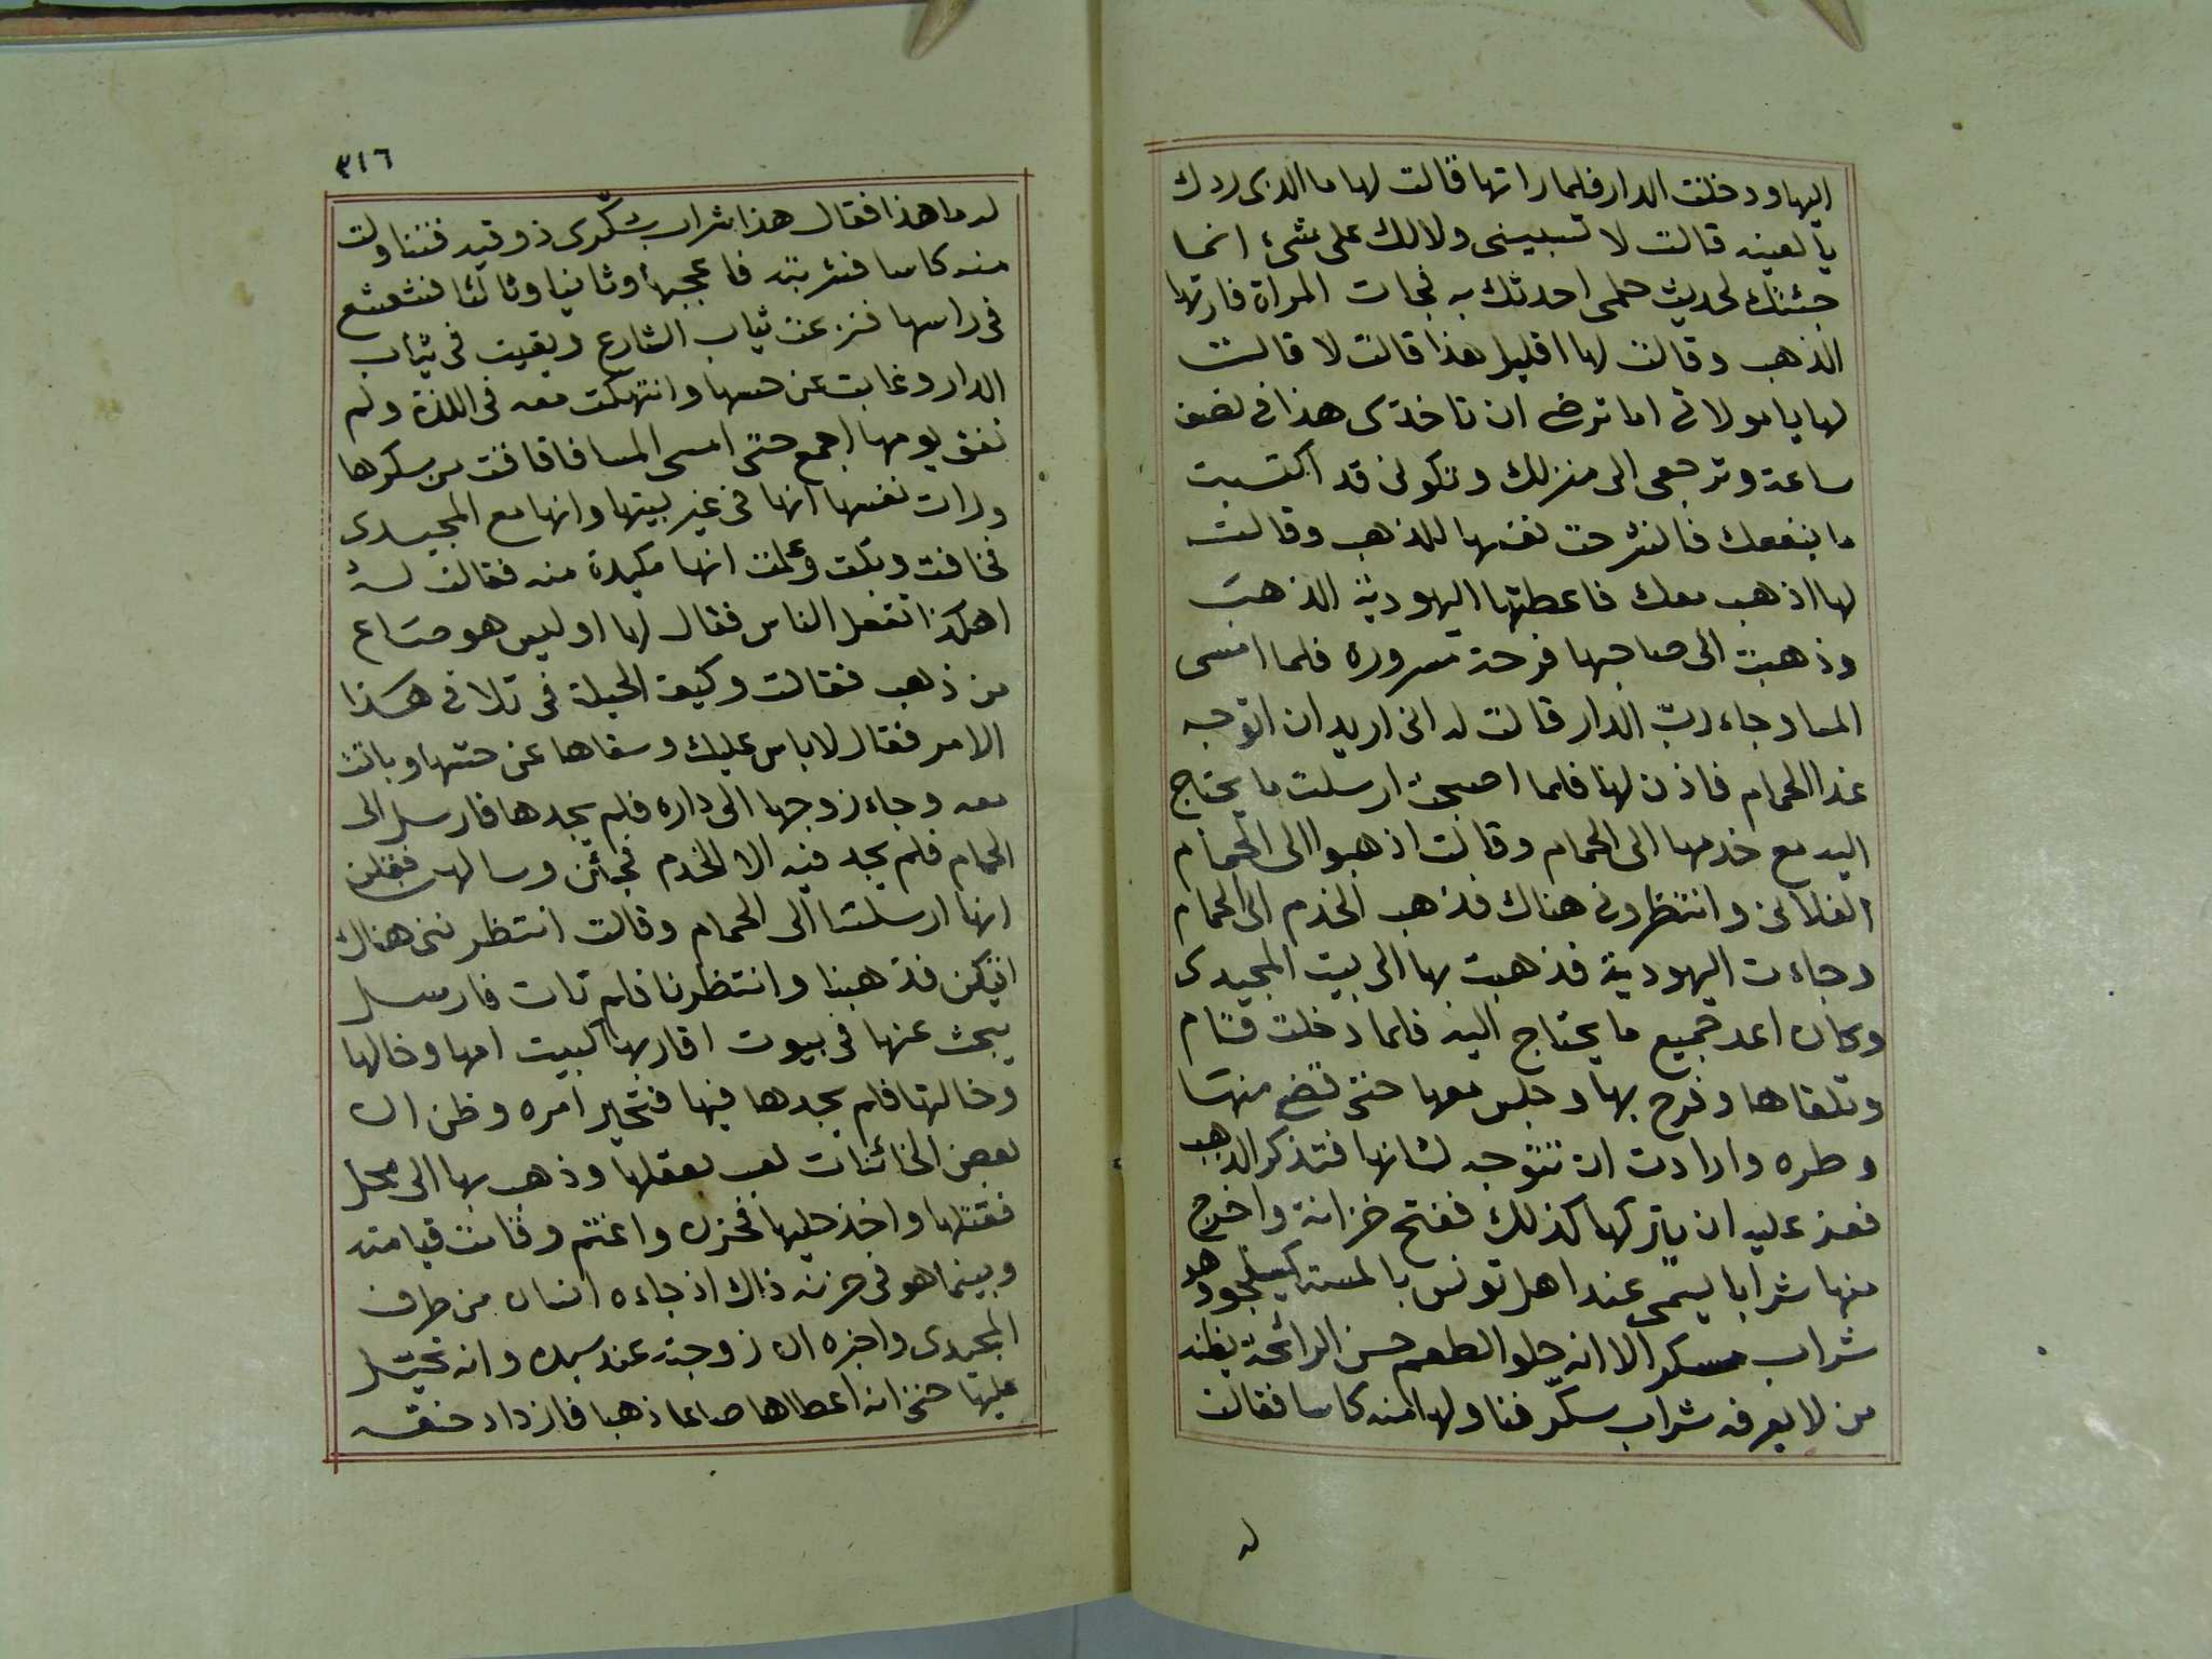 اليها ودخلت الدار فلما راتها قالت لها ما الذى ردك
يا لعينه قالت لا تسبينى ولا لك على شئ انما
جئتك لحديث حلمى احدثك به فجات المراة فارتها
الذهب وقالت لها اقليل هذا قالت لا قالت
لها يا مولاتى اما ترضى ان تاخذى هذا فى نصف
ساعة وترجعى الى منزلك وتكونى قد اكتسبت
ما ينفعك فانشرحت نفسها للذهب وقالت
لها اذهب معك فاعطتها اليهودية الذهب
وذهبت الى صاحبها فرحة مسروره فلما امسى
المسا وجاء رب الدار قالت له انى اريد ان اتوجه
غدا الحمام فاذن لها فلما اصبحت ارسلت ما يحتاج
اليه مع خدمها الى الحمام وقالت اذهبوا الى الحمام
الفلانى وانتظرونى هناك فذهب الخدم الى الحمام
وجاءت اليهودية فذهبت بها الى بيت المجيدى
وكان اعد جميع ما يحتاج اليه فلما دخلت قام
وتلقاها وفرح بها وجلس معها حتى قضى منها
وطره وارادت ان تتوجه لشانها فتذكر الذهب
فعز عليه ان يتركها كذلك ففتح خزانة واخرج
منها شرابا يسمى عند اهل تونس بالمسته وهو
شراب مسكر الا انه حلو الطعم حسن الرائحة يظنه
من لا يعرفه شراب سكر فناولها منه كاسا فقالت
له
٣١٦
له ما هذا فقال هذا شراب سكّرى ذوقيه فتناولت
منه كاسا فشربته فاعجبها وثانيا وثالثا فتشعشع
فى راسها فنزعت ثياب الشارع وبقيت فى ثياب
الدار وغابت عن حسها وانتهكت معه فى اللذة ولم
تفق يومها اجمع حتى امسى المسا فافاقت من سكرها
ورات نفسها انها فى غير بيتها وانها مع المجيدى
فخافت وبكت وعلمت انها مكيدة منه فقالت له
اهكذا تفعل الناس فقال لها اوليس هو صاع
من ذهب فقالت وكيف الحيلة فى تلافى هكذا
الامر فقال لا باس عليك وسقاها عن حسها وباتت
معه وجاء زوجها الى داره فلم يجدها فارسل الى
الحمام فلم يجد فيه الا الخدم فجائن وسالهن فقلن
انها ارسلتنا الى الحمام وقالت انتظرننى هناك
اتيكن فذهبنا وانتظرنا فلم تات فارسل
يبحث عنها فى بيوت اقاربها كبيت امها وخالها
وخالتها فلم يجدها فيها فتحير امره وظن ان
بعض الخائنات لعب بعقلها وذهب بها الى محل
فقتلها واخذ حليها فحزن واغتم وقامت قيامته
وبينما هو فى حزنه ذاك اذ جاءه انسان من طرف
المجيدى واخبره ان زوجته عند سيده وانه تحيل
عليها حتى انه اعطاها صاعا ذهبا فازداد حنقه